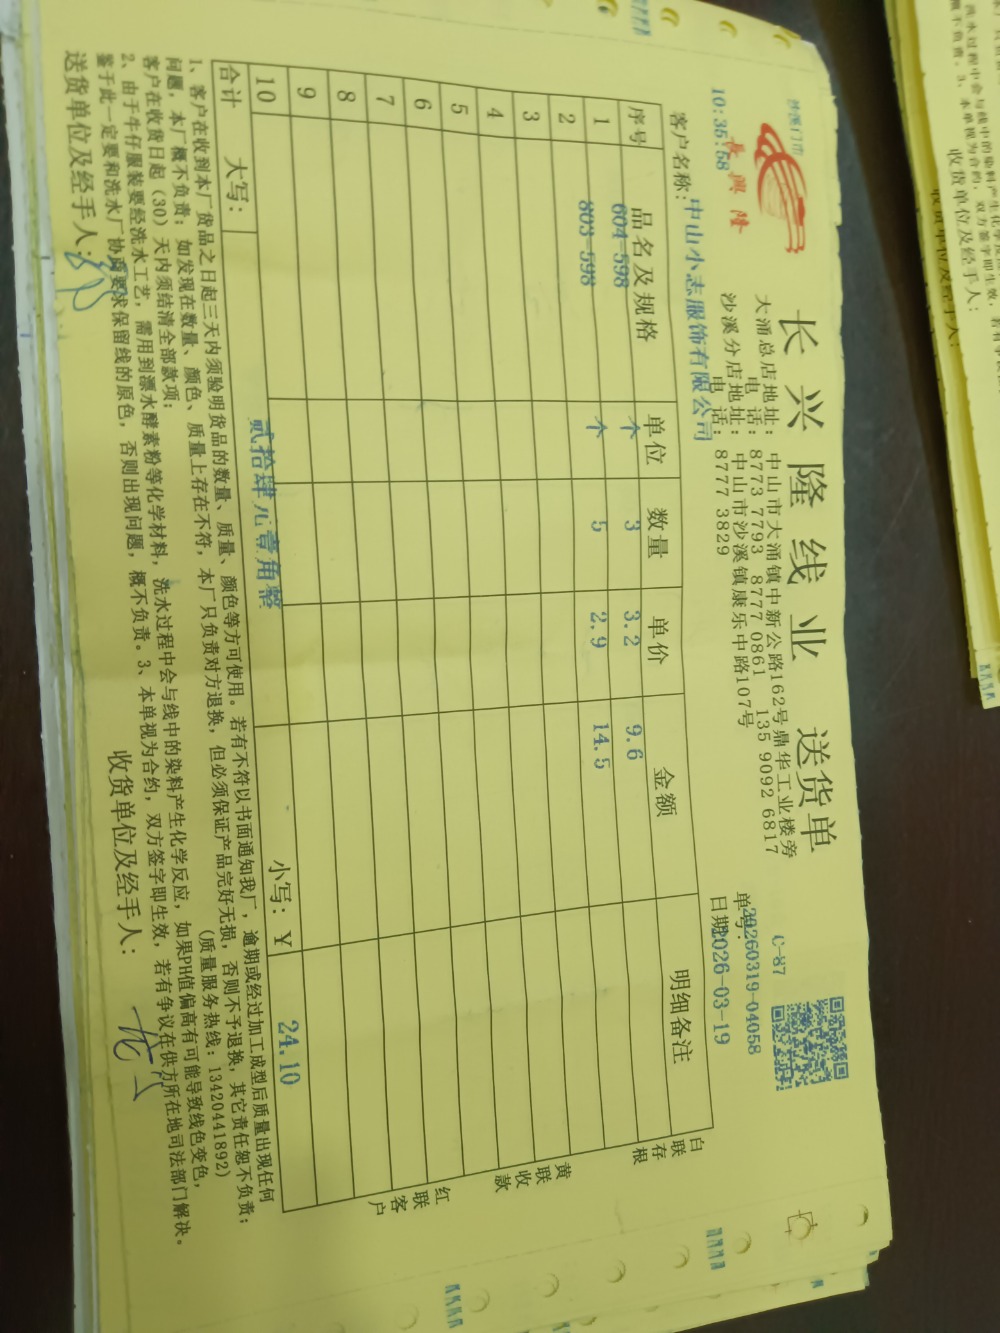 长兴隆线业 送货单
沙溪门市
長興隆
10:35:58
大涌总店地址：中山市大涌镇中新公路162号鼎华工业楼旁
电 话：8773 7793 8777 0861 135 9092 6817
沙溪分店地址：中山市沙溪镇康乐中路107号
电 话：8777 3829
C-87
单号：20260319-04058
日期：2026-03-19
客户名称：中山小志服饰有限公司
序号 品名及规格 单位 数量 单价 金额 明细备注
1 604-598 个 3 3.2 9.6
2 803-598 个 5 2.9 14.5
3
4
5
6
7
8
9
10
合计 大写：贰拾肆元壹角整 小写：￥ 24.10
白联存根
黄联收款
红联客户
1、客户在收到本厂货品之日起三天内须验明货品的数量、质量、颜色等方可使用。若有不符以书面通知我厂，逾期或经过加工成型后质量出现任何
问题，本厂概不负责；如发现在数量、颜色、质量上存在不符，本厂只负责对方退换，但必须保证产品完好无损，否则不予退换，其它责任恕不负责；
客户在收货日起（30）天内须结清全部款项； （质量服务热线：13420441892）
2、由于牛仔服装要经洗水工艺，需用到漂水酵素粉等化学材料，洗水过程中会与线中的染料产生化学反应，如果PH值偏高有可能导致线色变色，
鉴于此一定要和洗水厂协商要求保留线的原色，否则出现问题，概不负责。3、本单视为合约，双方签字即生效，若有争议在供方所在地司法部门解决。
送货单位及经手人： 收货单位及经手人：
收货单位及经手人：